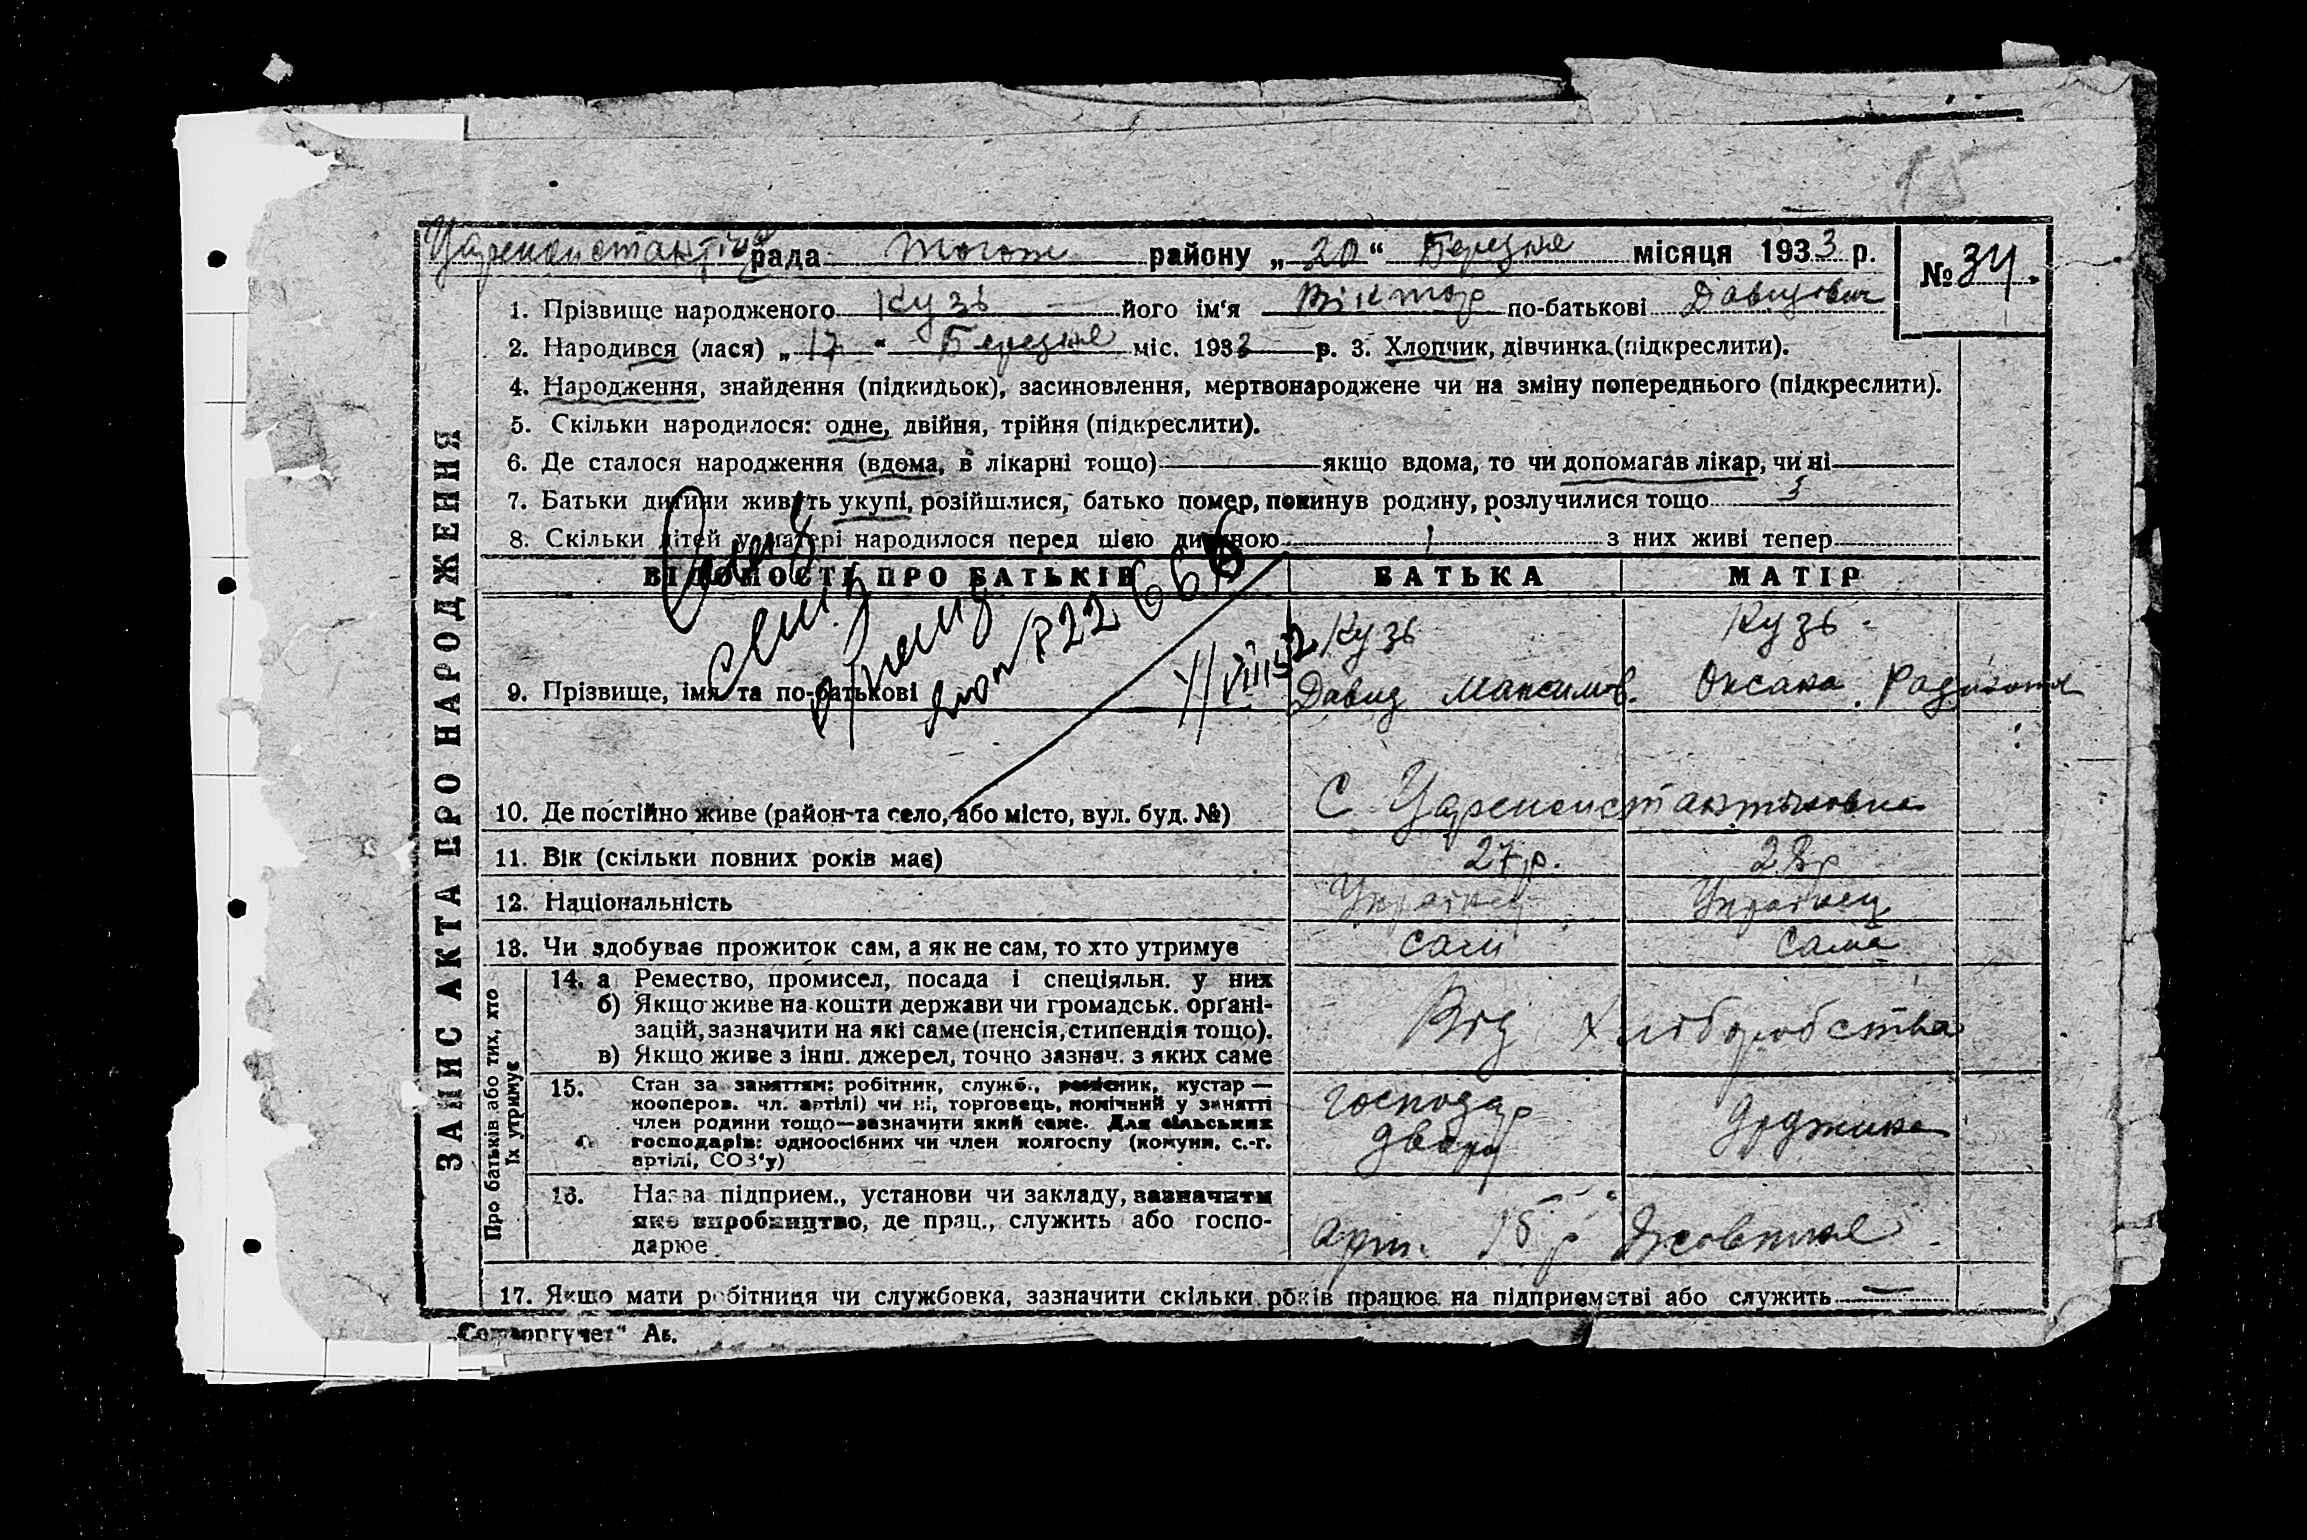 15
Царeконстантінів рада того ж району „20“ Березня місяця 1933 р.
№ 34.
1. Прізвище народженого Кузь його ім‘я Віктор по-батькові Давидович
2. Народився (лася) „17“ Березня міс. 1933 р. 3. Хлопчик, дівчинка (підкреслити).
4. Народження, знайдення (підкидьок), засиновлення, мертвонароджене чи на зміну попереднього (підкреслити).
5. Скільки народилося: одне, двійня, трійня (підкреслити).
6. Де сталося народження (вдома, в лікарні тощо) якщо вдома, то чи допомагав лікар, чи ні
7. Батьки дитини живуть укупі, розійшлися, батько помер, покинув родину, розлучилися тощо
8. Скільки дітей у матері народилося перед цією дитиною 1 з них живі тепер
ВІДОМОСТІ ПРО БАТЬКІВ БАТЬКА МАТІР
Кузь Кузь
9. Прізвище, імя та по-батькові Давид Максимов. Оксана
10. Де постійно живе (район та село, або місто, вул. буд. №) С Цареконстантиновка
11. Вік (скільки повних років має) 27 р. 28 р
12. Національність Українец Українец
13. Чи здобуває прожиток сам, а як не сам, то хто утримує сам сама
14. а Ремество, промисел, посада і спеціяльн. у них
б) Якщо живе на кошти держави чи громадськ. органі-
зацій, зазначити на які саме (пенсія, стипендія тощо).
в) Якщо живе з інш. джерел, точно зазнач. з яких саме
Від хліборобства
15. Стан за заняттям: робітник, служб., ремісник, кустар —
кооперов. чл. артілі) чи ні, торговець, помічний у занятті
член родини тощо—зазначити який саме. Для сільських
господарів: одноосібних чи член колгоспу (комуни, с.-г.
артілі, СОЗ‘у)
господар
двора
дружина
16. Назва підприєм., установи чи закладу, зазначити
яке виробництво, де прац., служить або госпо-
дарює
арт. 15 р Жовтня
17. Якщо мати робітниця чи службовка, зазначити скільки років працює на підприємстві або служить —
ЗАПИС АКТА ПРО НАРОДЖЕННЯ
Про батьків або тих, хто
їх утримує